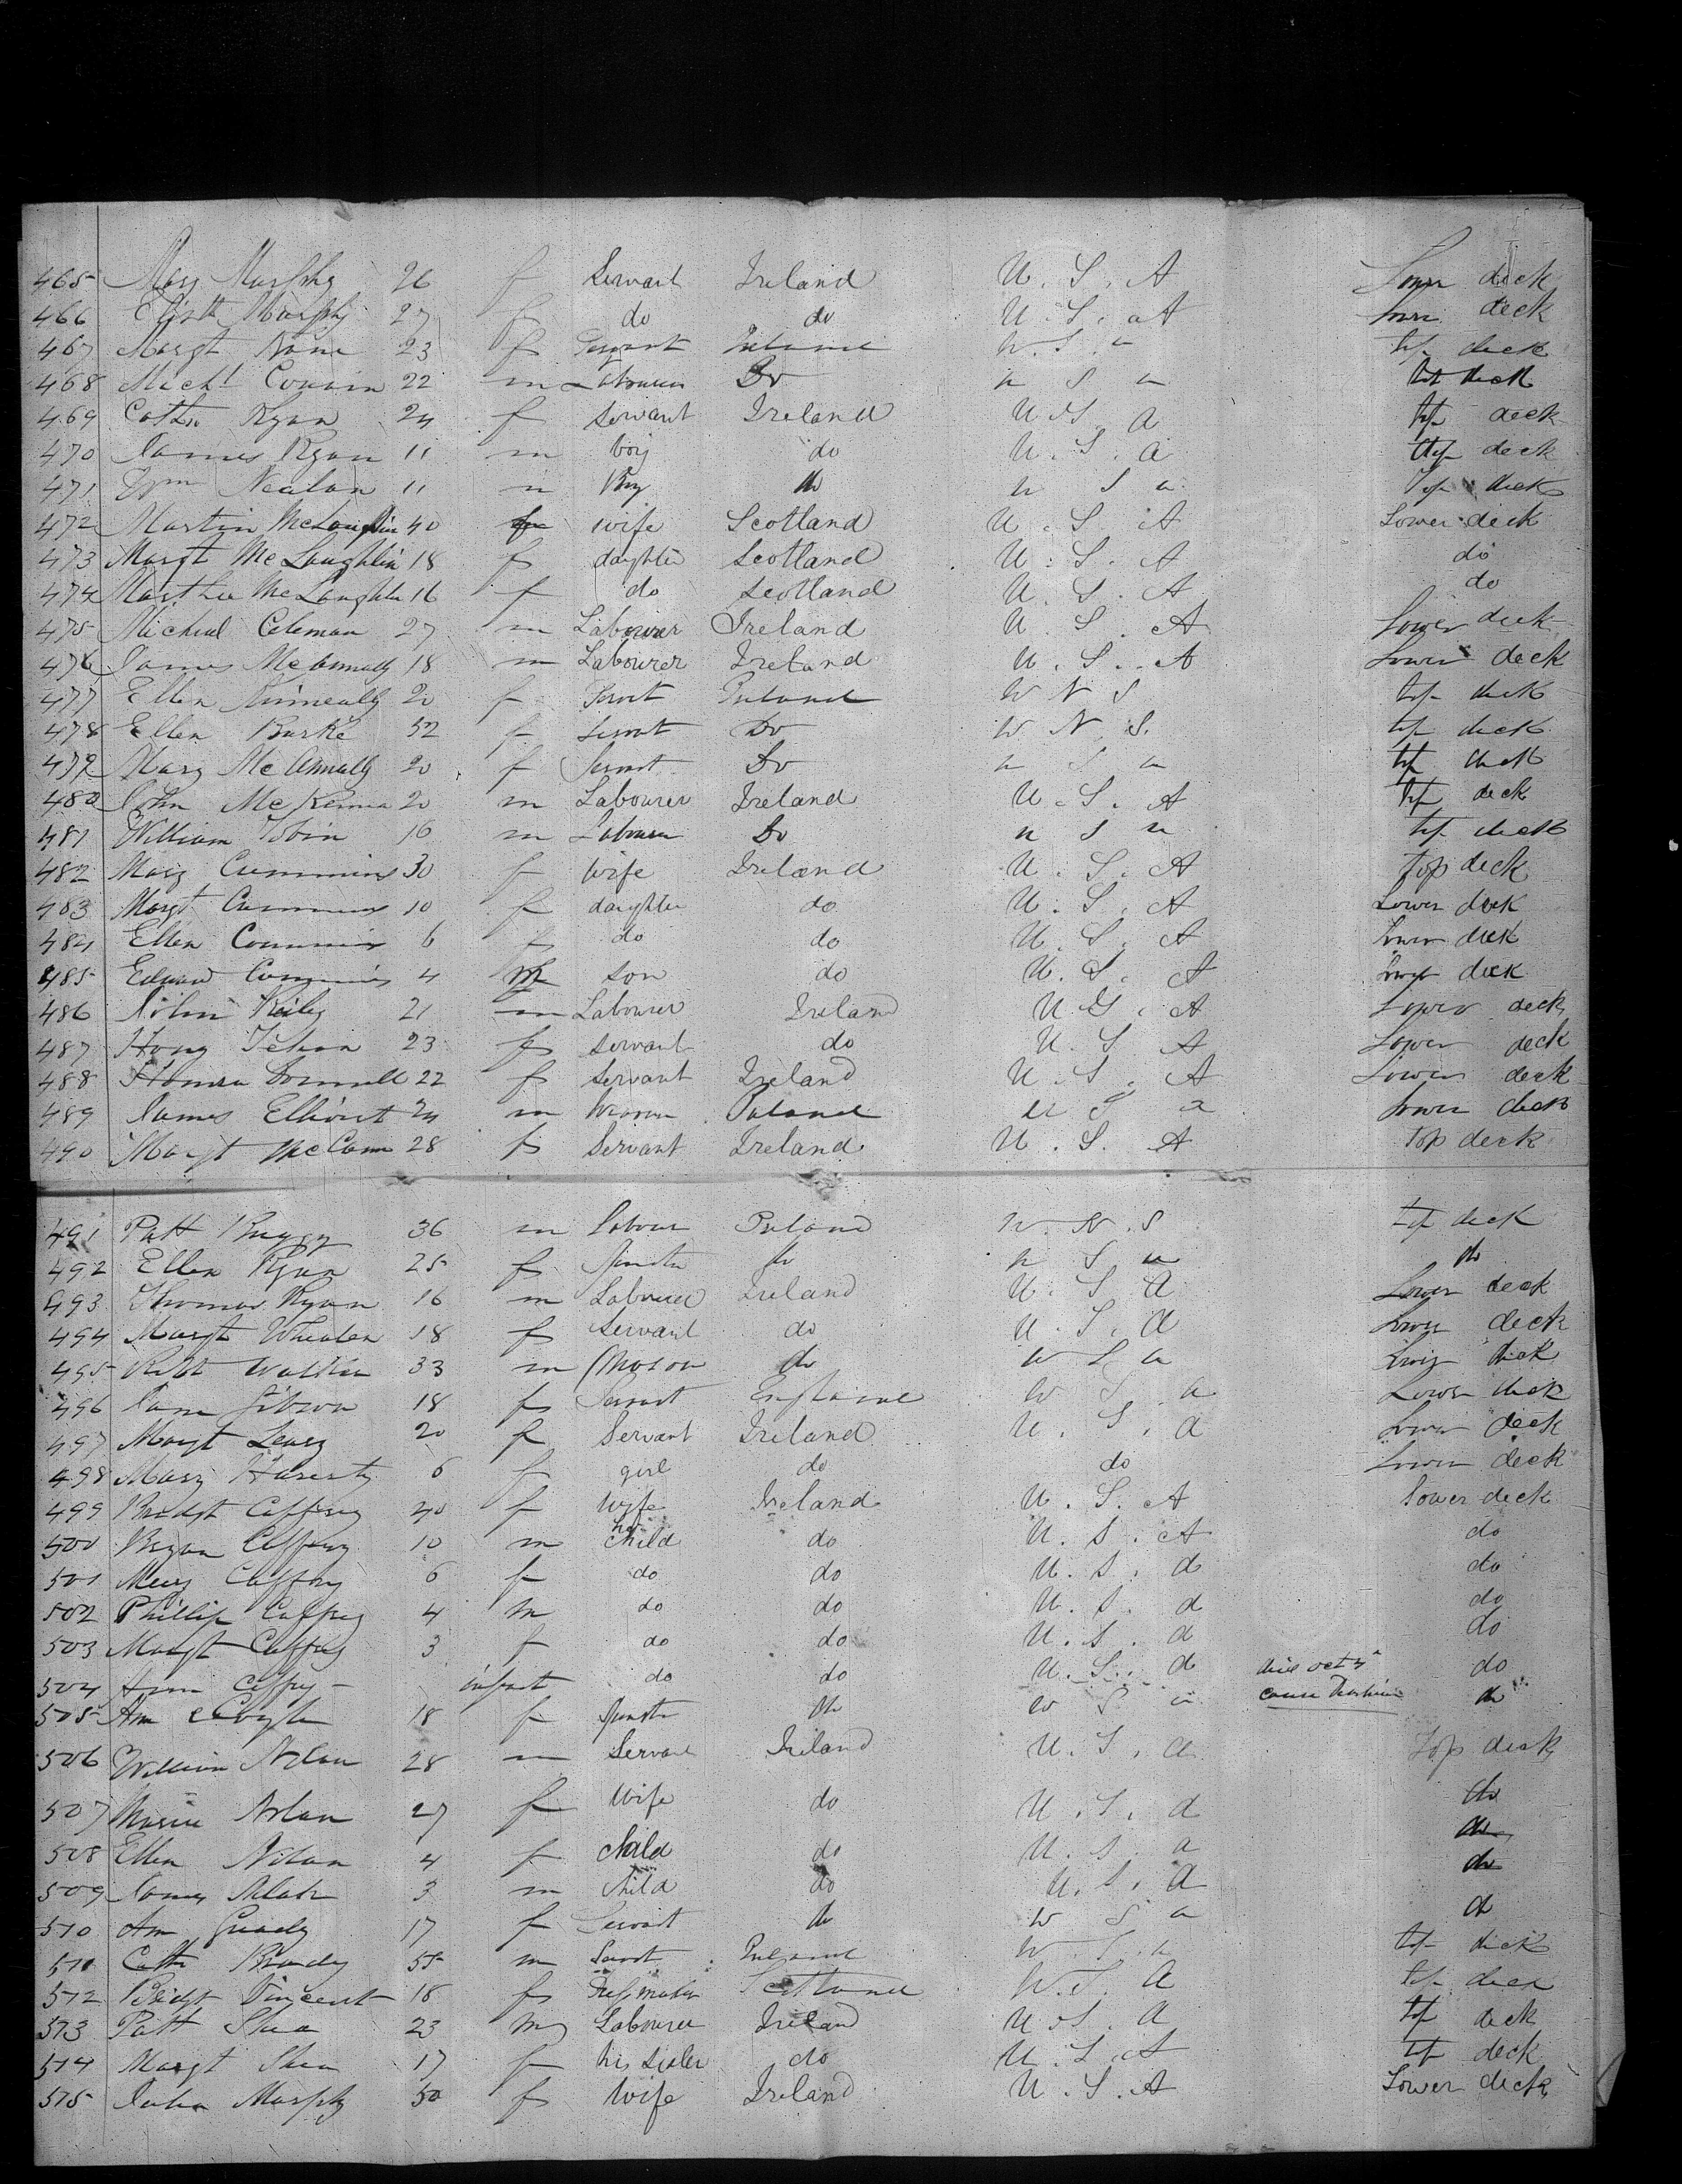 465 Mary Murphy 26 f Servant Ireland U. S. A Lower deck
466 Elizth Murphy 27 f do do U. S. A Lower deck
467 Margt Kane 23 f Servant Ireland U. S. a top deck
468 Michl Cousin 22 m Labourer Do u S a top deck
469 Cathe Ryan 24 f Servant Ireland U S. a top deck
470 James Ryan 11 m boy do U. S. a top deck
471 Nealan 11 m Boy do u S a Top deck
472 Martin McLaughlin 40 wife Scotland U. S. A Lower deck
473 Margt McLaughlin 18 f daughter Scotland U. S. A do
474 Martha McLaughlin 16 f do Scotland U. S. A do
475 Micheal Coleman 27 m Labourer Ireland U. S. A Lower deck
476 James McAnnally 18 m Labourer Ireland U. S. A Lower deck
477 Ellen Kinneally 20 f Servt Ireland top deck
478 Ellen Burke 52 f Servnt Do top deck
479 Mary McAnnally 20 f Servnt Do u S a top deck
480 John McKenna 20 m Labourer Ireland U. S. A top deck
481 William Tobin 16 m Labourer Do u S a top deck
482 Mary Cummins 30 f Wife Ireland U. S. A top deck
483 Margt Cummins 10 f daughter do U. S. A Lower deck
484 Ellen Cummins 6 f do do U. S. A Lower deck
485 Edward Cummins 4 m son do U. S. A Lower deck
486 John Kieley 21 m Labourer Ireland U S. A Lower deck
487 23 f Servant do U. S. A Lower deck
488 22 f Servant Ireland U. S. A Lower deck
489 James Elliout 24 m Ireland U S a Lower deck
490 Margt McCann 28 f Servant Ireland U. S. A top deck
491 Patt 36 m Labour Ireland top deck
492 Ellen Ryan 25 f do u S a do
493 Thomas Ryan 16 m Labourer Ireland U. S. A Lower deck
494 Margt Whealen 18 f Servant do U. S. A Lower deck
495 Robt 33 m Mason do U S a Lower deck
496 Jane Gibson 18 f Servnt England U S. a Lower deck
497 Margt Leary 20 f Servant Ireland U. S. A Lower deck
498 Mary Haresty 6 f girl do do Lower deck
499 Bridgt Caffrey 40 f Wife Ireland U. S. A Lower deck
500 Bryan Caffrey 10 m her child do U. S. A do
501 Mary Caffrey 6 f do do U. S. A do
502 Phillip Caffrey 4 m do do U. S. A do
503 Margt Caffrey 3 f do do U. S. A do
504 Ann Caffrey – infant do do U. S. A do
505 Ann 18 f do U S a do
506 William Nolan 28 m Servant Ireland U. S. A Top deck
507 Maria Nolan 27 f Wife do U. S. A do
508 Ellen Nolan 4 f child do U. S. A do
509 James Nolan 3 m child do U. S. A do
510 Ann Grady 17 f Servant do U S a do
511 Cath Brady 55 m Servnt Ireland U. S. a top deck
512 Bridgt Vincent 18 f Dressmaker Scotland U. S. A top deck
513 Patt Shea 23 m Labourer Ireland U S. A top deck
514 Margt Shea 17 f his sister do U. S. A top deck
515 Julia Murphy 50 f Wife Ireland U. S. A Lower deck